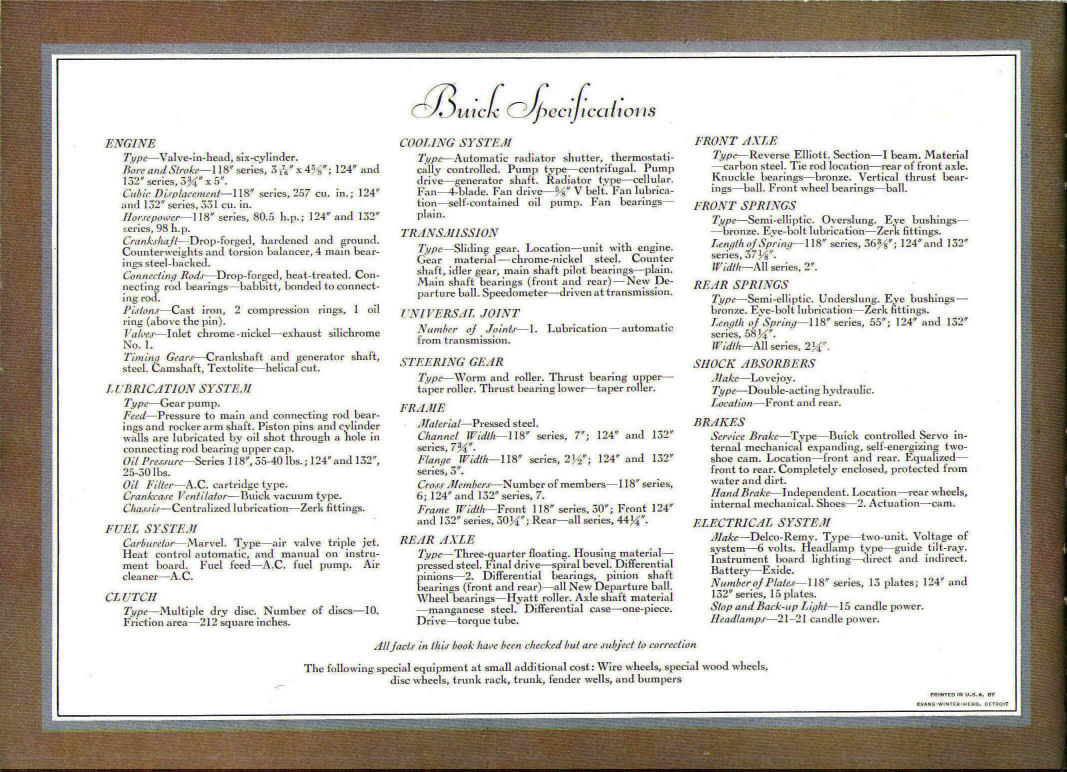 Buick Specifications
ENGINE
Type—Valve-in-head, six-cylinder.
Bore and Stroke—118" series, 3 7/16" x 4 5/8"; 124" and
132" series, 3¾" x 5".
Cubic Displacement—118" series, 257 cu. in.; 124"
and 132" series, 331 cu. in.
Horsepower—118" series, 80.5 h.p.; 124" and 132"
series, 98 h.p.
Crankshaft—Drop-forged, hardened and ground.
Counterweights and torsion balancer, 4 main bear-
ings steel-backed.
Connecting Rods—Drop-forged, heat-treated. Con-
necting rod bearings—babbitt, bonded to connect-
ing rod.
Pistons—Cast iron, 2 compression rings, 1 oil
ring (above the pin).
Valves—Inlet chrome-nickel—exhaust silichrome
No. 1.
Timing Gears—Crankshaft and generator shaft,
steel. Camshaft, Textolite—helical cut.
LUBRICATION SYSTEM
Type—Gear pump.
Feed—Pressure to main and connecting rod bear-
ings and rocker arm shaft. Piston pins and cylinder
walls are lubricated by oil shot through a hole in
connecting rod bearing upper cap.
Oil Pressure—Series 118", 35-40 lbs.; 124" and 132",
25-30 lbs.
Oil Filter—A.C. cartridge type.
Crankcase Ventilator—Buick vacuum type.
Chassis—Centralized lubrication—Zerk fittings.
FUEL SYSTEM
Carburetor—Marvel. Type—air valve triple jet.
Heat control automatic, and manual on instru-
ment board. Fuel feed—A.C. fuel pump. Air
cleaner—A.C.
CLUTCH
Type—Multiple dry disc. Number of discs—10.
Friction area—212 square inches.
COOLING SYSTEM
Type—Automatic radiator shutter, thermostati-
cally controlled. Pump type—centrifugal. Pump
drive—generator shaft. Radiator type—cellular.
Fan—4-blade. Fan drive—⅝" V belt. Fan lubrica-
tion—self-contained oil pump. Fan bearings—
plain.
TRANSMISSION
Type—Sliding gear. Location—unit with engine.
Gear material—chrome-nickel steel. Counter
shaft, idler gear, main shaft pilot bearings—plain.
Main shaft bearings (front and rear)—New De-
parture ball. Speedometer—driven at transmission.
UNIVERSAL JOINT
Number of Joints—1. Lubrication—automatic
from transmission.
STEERING GEAR
Type—Worm and roller. Thrust bearing upper—
taper roller. Thrust bearing lower—taper roller.
FRAME
Material—Pressed steel.
Channel Width—118" series, 7"; 124" and 132"
series, 7¾".
Flange Width—118" series, 2½"; 124" and 132"
series, 3".
Cross Members—Number of members—118" series,
6; 124" and 132" series, 7.
Frame Width—Front 118" series, 30"; Front 124"
and 132" series, 30¼"; Rear—all series, 44¼".
REAR AXLE
Type—Three-quarter floating. Housing material—
pressed steel. Final drive—spiral bevel. Differential
pinions—2. Differential bearings, pinion shaft
bearings (front and rear)—all New Departure ball.
Wheel bearings—Hyatt roller. Axle shaft material
—manganese steel. Differential case—one-piece.
Drive—torque tube.
FRONT AXLE
Type—Reverse Elliott. Section—I beam. Material
—carbon steel. Tie rod location—rear of front axle.
Knuckle bearings—bronze. Vertical thrust bear-
ings—ball. Front wheel bearings—ball.
FRONT SPRINGS
Type—Semi-elliptic. Overslung. Eye bushings—
—bronze. Eye-bolt lubrication—Zerk fittings.
Length of Spring—118" series, 36⅜"; 124" and 132"
series, 37⅛".
Width—All series, 2".
REAR SPRINGS
Type—Semi-elliptic. Underslung. Eye bushings—
bronze. Eye-bolt lubrication—Zerk fittings.
Length of Spring—118" series, 55"; 124" and 132"
series, 58¼".
Width—All series, 2¼".
SHOCK ABSORBERS
Make—Lovejoy.
Type—Double-acting hydraulic.
Location—Front and rear.
BRAKES
Service Brake—Type—Buick controlled Servo in-
ternal mechanical expanding, self-energizing two-
shoe cam. Location—front and rear. Equalized—
front to rear. Completely enclosed, protected from
water and dirt.
Hand Brake—Independent. Location—rear wheels,
internal mechanical. Shoes—2. Actuation—cam.
ELECTRICAL SYSTEM
Make—Delco-Remy. Type—two-unit. Voltage of
system—6 volts. Headlamp type—guide tilt-ray.
Instrument board lighting—direct and indirect.
Battery—Exide.
Number of Plates—118" series, 13 plates; 124" and
132" series, 15 plates.
Stop and Back-up Light—15 candle power.
Headlamps—21-21 candle power.
All facts in this book have been checked but are subject to correction
The following special equipment at small additional cost: Wire wheels, special wood wheels,
disc wheels, trunk rack, trunk, fender wells, and bumpers
PRINTED IN U.S.A. BY
EVANS-WINTER-HEBB, DETROIT